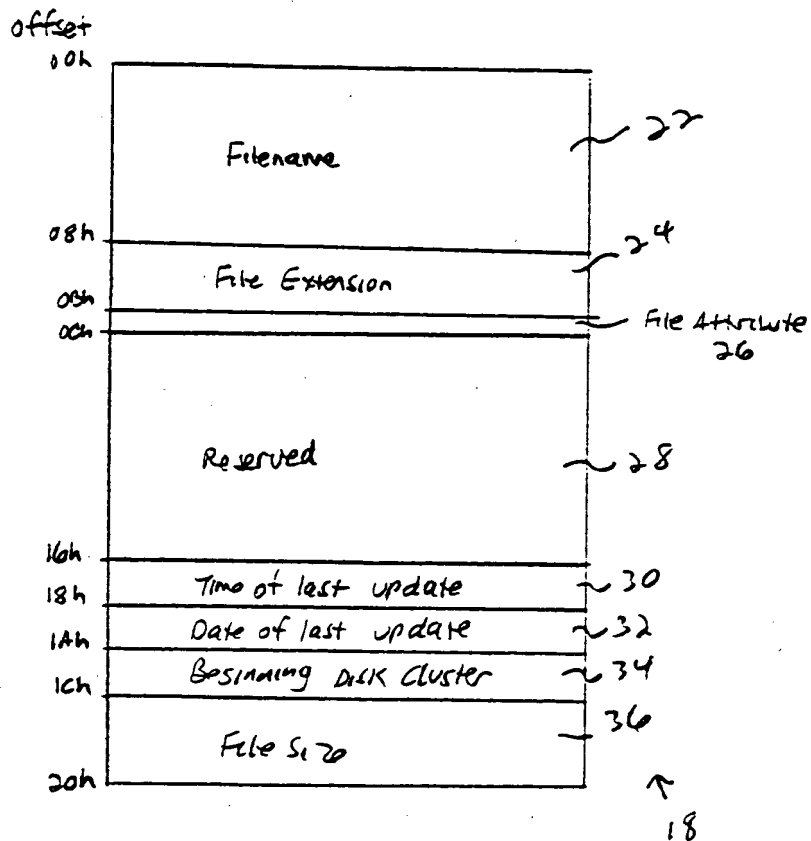 offset
00h
Filename
22
08h
File Extension
24
0Bh
0Ch
File Attribute
26
Reserved
28
16h
Time of last update
30
18h
Date of last update
32
1Ah
Beginning Disk Cluster
34
1Ch
File Size
36
20h
18